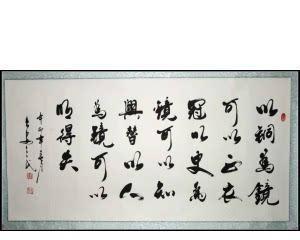 以銅為鏡
可以正衣
冠以史為
鏡可以知
興替以人
為鏡可以
明得失